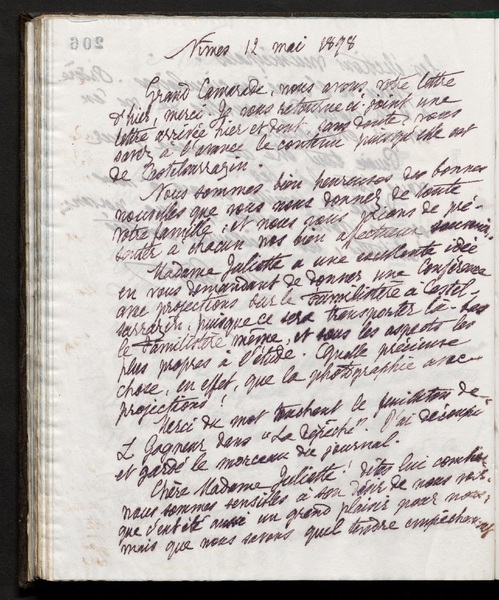 206
Nîmes 12 mai 1898
Grand Camarade, nous avons votre lettre
d'hier, merci. Je vous retourne ci-joint une
lettre arrivée hier et dont, sans doute, vous
savez à l'avance le contenu puisqu'elle est
de Castelsarrazin.
Nous sommes bien heureuses des bonnes
nouvelles que vous nous donnez de toute
votre famille, et nous vous prions de pré-
senter à chacun nos bien affectueux souvenirs.
Madame Juliette a une excellente idée
en vous demandant de donner une Conférence
avec projections sur le Familistère à Castel-
sarrazin, puisque ce sera transporter là-bas
le Familistère même, et sous les aspects les
plus propres à l'étude. Quelle précieuse
chose, en effet, que la photographie avec
projections !
Merci du mot touchant le
L Gagneur dans "La Dépêche". J'ai découpé
et gardé le morceau du journal.
Chère Madame Juliette ! dites lui combien
nous sommes sensibles à son désir de nous voir,
que c'eut été aussi un grand plaisir pour nous,
mais que nous savons quel tendre empêchem